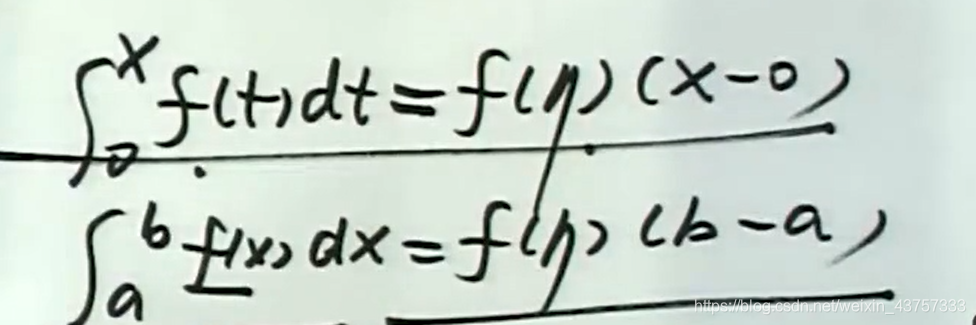 ∫₀ˣ f(t)dt = f(η)(x-0)
∫ₐᵇ f(x)dx = f(η)(b-a)
https://blog.csdn.net/weixin_43757333